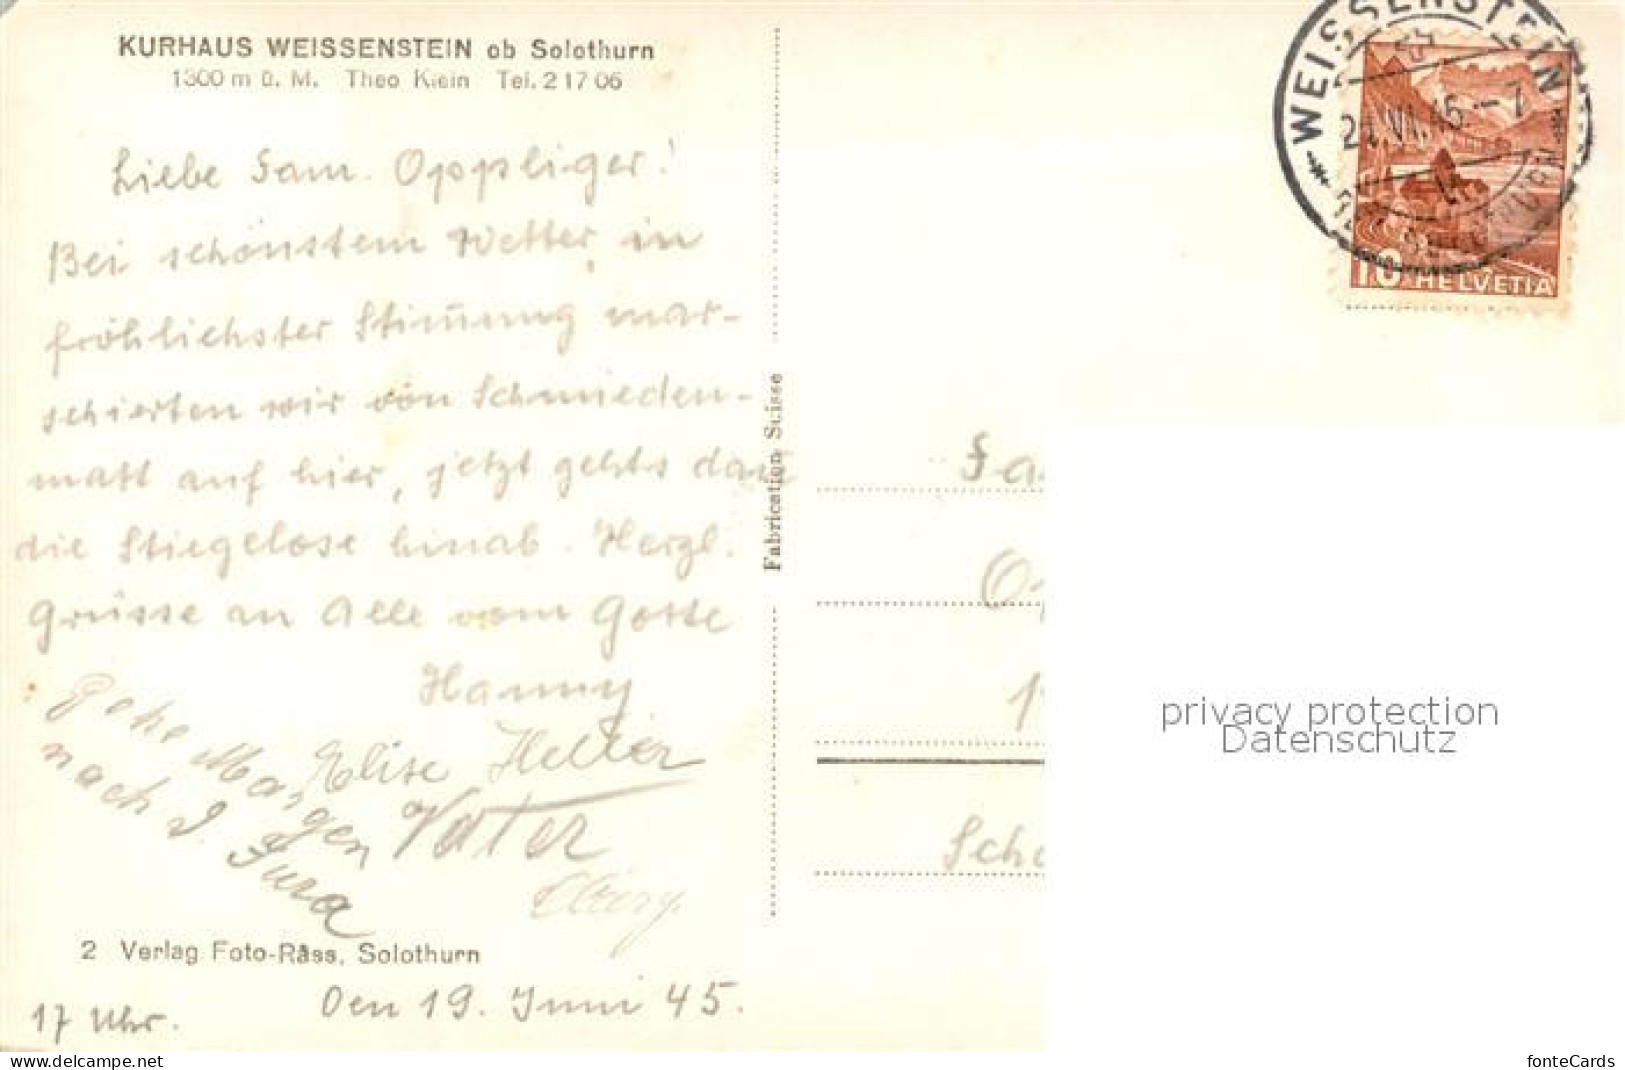 KURHAUS WEISSENSTEIN ob Solothurn
1300 m ü. M. Theo Klein Tel. 2 17 06
Liebe Fam. Oppliger!
Bei schönstem Wetter, in
fröhlichster Stim̄ung mar-
schierten wir von Schmieden-
matt auf hier, jetzt gehts dan̄
die Stiegelose hinab. Herzl.
Grüsse an Alle vom Gotte
Hanny
Elise Heller
Vater
Gehe Morgen
nach d. Jura
2 Verlag Foto-Räss, Solothurn
17 Uhr. Den 19. Juni 45.
Fabrication Suisse
WEISSENSTEIN
VI.45-7
10 HELVETIA
Fa
Op
Sch
privacy protection
Datenschutz
www.delcampe.net
fonteCards